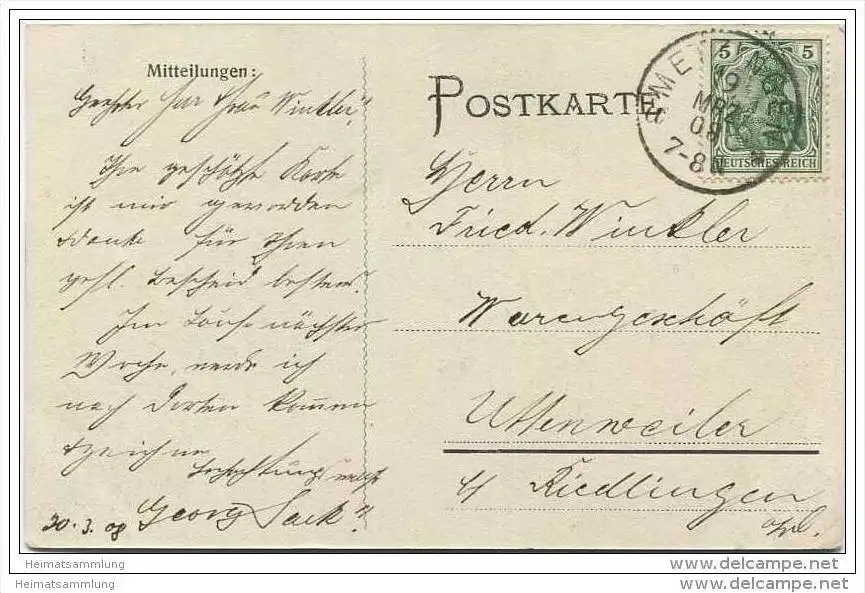 Mitteilungen:
Geehrter Herr Frau Winkler!
Ihre geschätzte Karte
ist mir geworden
danke für Ihren
gefl. Bescheid bestens.
Im Laufe nächster
Woche, werde ich
nach dorten kommen
zeichne
Hochachtungsvollst
20.3.08 Georg Sack
POSTKARTE
METZINGEN
19
MRZ
08
7-8N
5 5
DEUTSCHES REICH
Herrn
Fried. Winkler
Warengeschäft
Uttenweiler
b/ Riedlingen
www.delcampe.net
Heimatsammlung
www.delcampe.net
Heimatsammlung